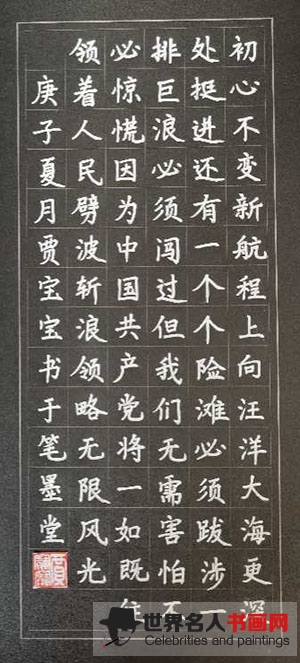 初心不变新航程上向汪洋大海更深
处挺进还有一个个险滩必须跋涉一
排巨浪必须闯过但我们无需害怕不
必惊慌因为中国共产党将一如既
领着人民劈波斩浪领略无限风光
庚子夏月贾宝宝书于笔墨堂
世界名人书画网
Celebrities and paintings